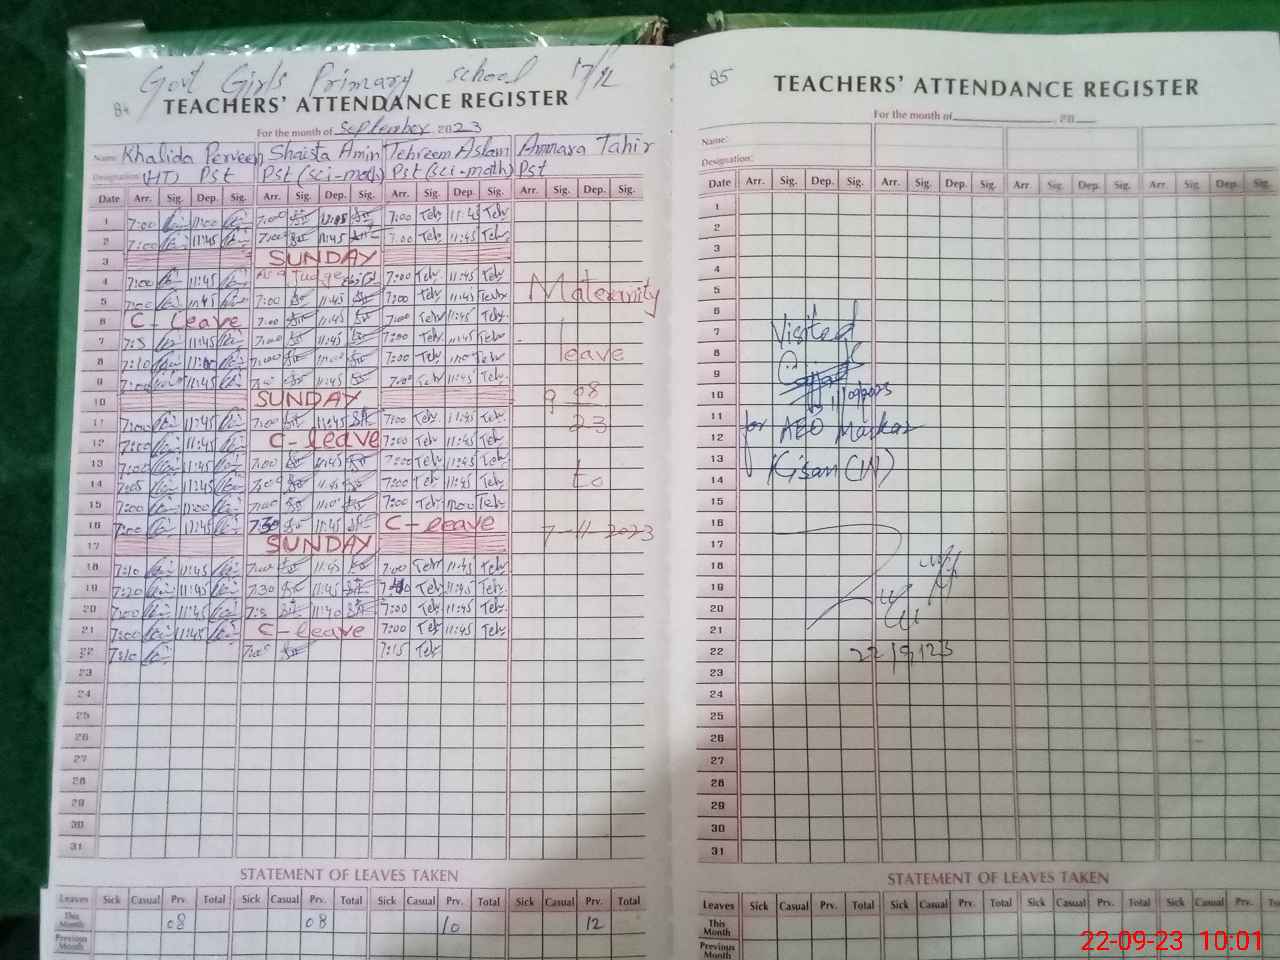 Govt Girls Primary school 17/1L
84
TEACHERS' ATTENDANCE REGISTER
For the month of September 2023
Name: Khalida Perveen Shaista Amin Tehreem Aslam Ammara Tahir
Designation: (HT) Pst Pst (sci-math) Pst (sci-math) Pst
Date Arr. Sig. Dep. Sig. Arr. Sig. Dep. Sig. Arr. Sig. Dep. Sig. Arr. Sig. Dep. Sig.
1 7:00 11:00 7:00 7:00 Teh 11:45 Teh
2 7:00 11:45 7:00 11:45 7:00 Teh 11:45 Teh
3 SUNDAY
4 7:00 11:45 As a Judge 7:00 Teh 11:45 Teh
5 7:00 11:45 7:00 11:45 7:00 Teh 11:45 Teh
6 C-Leave 7:00 11:45 7:00 Teh 11:45 Teh
7 7:5 11:45 7:00 11:45 7:00 Teh 11:45 Teh
8 7:10 7:00 7:00 Teh Teh
9 7:00 11:45 11:45 7:00 Teh 11:45 Teh
10 SUNDAY
11 7:00 11:45 7:00 11:45 7:00 Teh 11:45 Teh
12 7:00 11:45 C-leave 7:00 Teh 11:45 Teh
13 7:00 11:45 7:00 11:45 7:00 Teh 11:45 Teh
14 7:05 11:45 7:00 11:45 7:00 Teh 11:45 Teh
15 7:00 11:00 7:00 7:00 Teh Teh
16 7:00 11:45 7:30 11:45 C-leave
17 SUNDAY
18 7:10 11:45 7:00 11:45 7:00 Teh 11:45 Teh
19 7:20 11:45 7:30 11:45 Teh 11:45 Teh
20 7:00 11:45 7:5 11:40 7:00 Teh 11:45 Teh
21 7:00 11:45 C-leave 7:00 Teh 11:45 Teh
22 7:10 7:00 7:15 Teh
23
24
25
26
27
28
29
30
31
Maternity
leave
9 08
23
to
7-11-2023
STATEMENT OF LEAVES TAKEN
Leaves Sick Casual Prv. Total Sick Casual Prv. Total Sick Casual Prv. Total Sick Casual Prv. Total
This Month 08 08 10 12
Previous Month
85
TEACHERS' ATTENDANCE REGISTER
For the month of , 20
Name:
Designation:
Date Arr. Sig. Dep. Sig. Arr. Sig. Dep. Sig. Arr. Sig. Dep. Sig. Arr. Sig. Dep. Sig.
1
2
3
4
5
6
7
8
9
10
11
12
13
14
15
16
17
18
19
20
21
22
23
24
25
26
27
28
29
30
31
Visited
for AEO Markaz
Kisan (W)
22/9/23
STATEMENT OF LEAVES TAKEN
Leaves Sick Casual Prv. Total Sick Casual Prv. Total Sick Casual Prv. Total Sick Casual Prv.
This Month
Previous Month
22-09-23 10:01